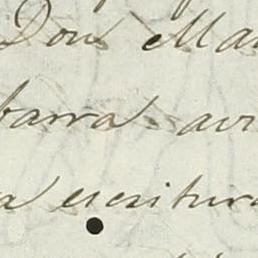 Don Ma
barra av
a escritura